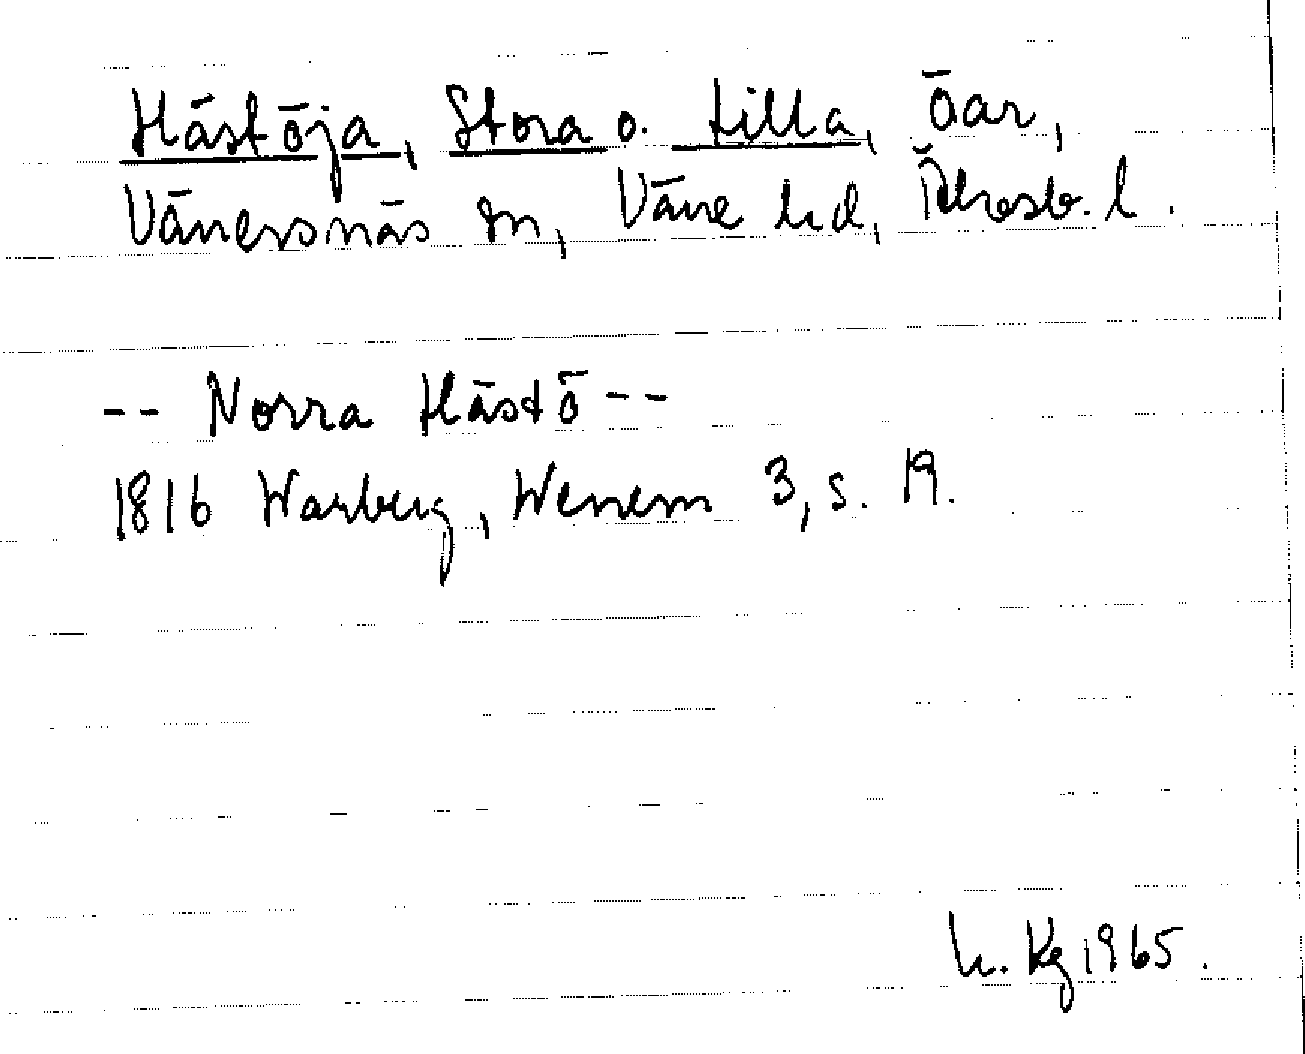 Hästöja, Stora o. Lilla, öar,
Vänersnäs sn, Väne hd, Älvsb. l.
-- Norra Hästö --
1816 Warberg, Wenern 3, s. 19.
L. Kg 1965.